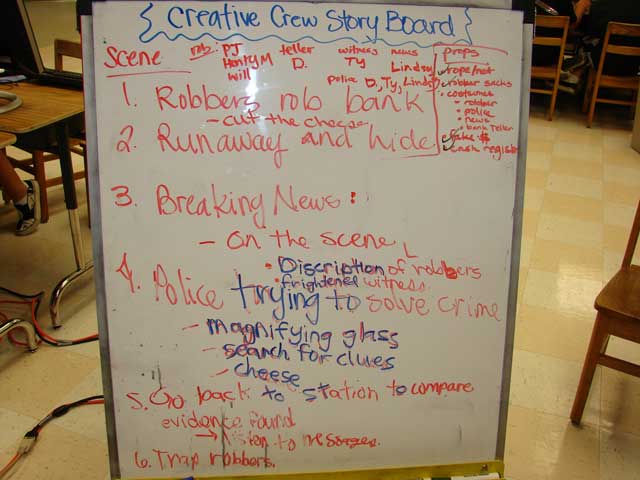 Creative Crew Story Board
Scene rob: PJ teller witness news props
Hanky M D. Ty Lindsay rope/net
Will police D, Ty, Lindsay robber sacks
1. Robbers rob bank • costumes
- cut the cheese • robber
• police
• news
• bank teller
2. Runaway and hide fake $
cash register
3. Breaking News:
- on the scene
• Discription of robbers
• frightened witness
4. Police trying to solve crime
- magnifying glass
- search for clues
- cheese
5. Go back to station to compare
evidence found
→ listen to messages.
6. Trap robbers.